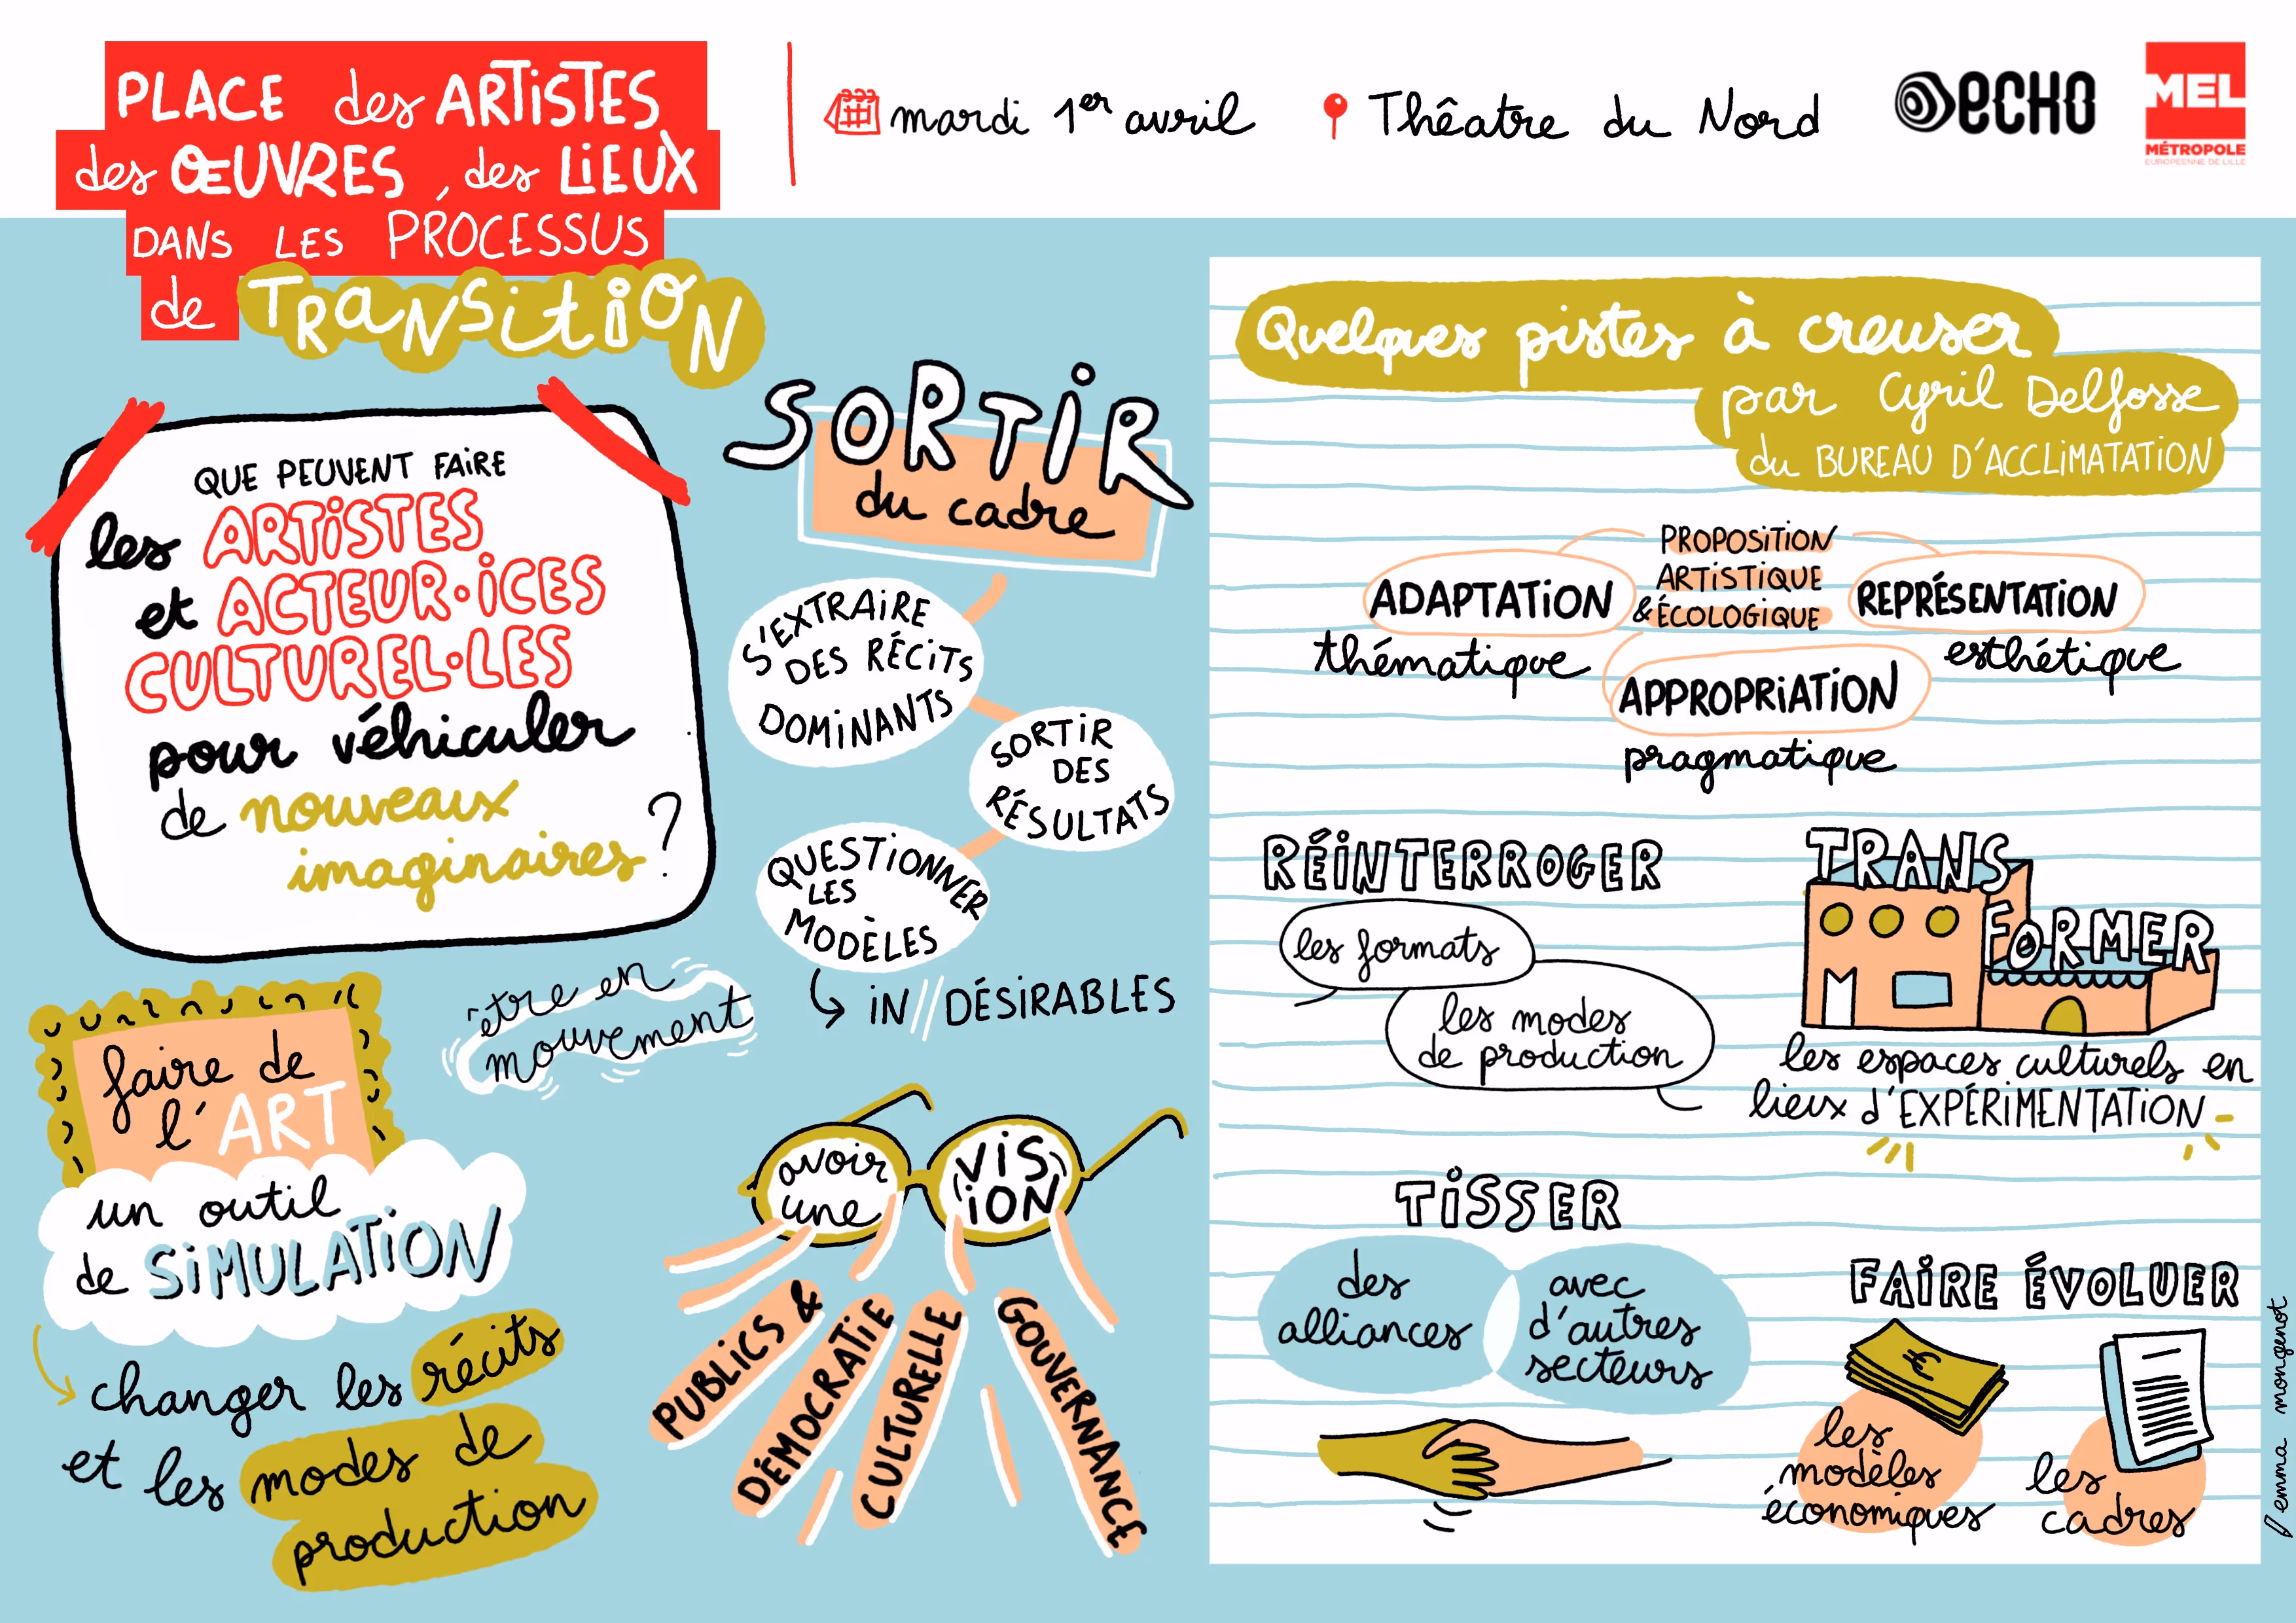 PLACE des ARTiSTES
des ŒUVRES, des LiEUX
DANS LES PROCESSUS
de TRaNSitiON
mardi 1er avril
Thêatre du Nord
ECHO
MEL
MÉTROPOLE
EUROPÉENNE DE LILLE
QUE PEUVENT FAiRE
les ARTiSTES
et ACTEUR·iCES
CULTUREL·LES
pour véhiculer
de nouveaux
imaginaires ?
SORTiR
du cadre
S'EXTRAiRE
DES RÉCiTS
DOMiNANTS
SORTiR
DES
RÉSULTATS
QUESTiONNER
LES
MODÈLES
iN//DÉSiRABLES
être en
mouvement
faire de
l'ART
un outil
de SiMULATiON
changer les récits
et les modes de
production
avoir
une
ViS
iON
PUBLiCS &
DÉMOCRATiE
CULTURELLE
GOUVERNANCE
Quelques pistes à creuser
par Cyril Delfosse
du BUREAU D'ACCLiMATATiON
PROPOSiTiON
ARTiSTiQUE
& ÉCOLOGiQUE
ADAPTATiON
thématique
REPRÉSENTATiON
esthétique
APPROPRiATiON
pragmatique
RÉiNTERROGER
les formats
les modes
de production
TRANS
FORMER
les espaces culturels en
lieux d'EXPÉRiMENTATiON
TiSSER
des
alliances
avec
d'autres
secteurs
FAiRE ÉVOLUER
€
les
modèles
économiques
les
cadres
emma mongenot